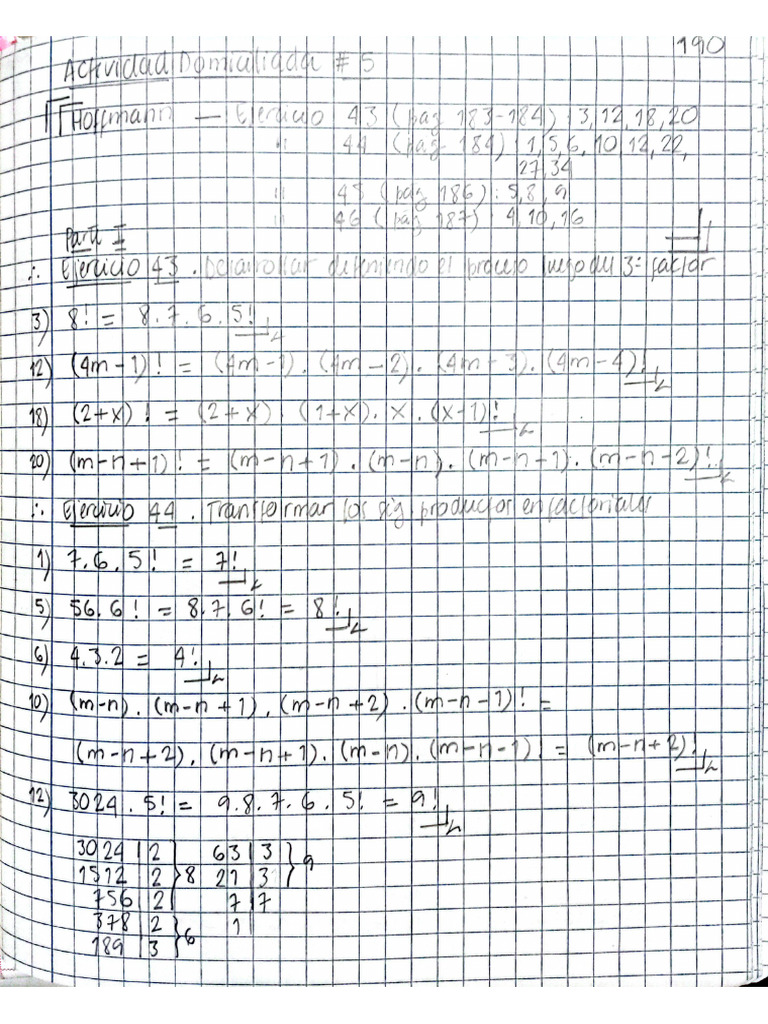 190
Actividad Domiciliada # 5
Hoffmann — Ejercicio 43 (pág 183-184): 3, 12, 18, 20
" 44 (pág 184): 1, 5, 6, 10, 12, 22,
27, 34
" 45 (pág 186): 5, 8, 9
" 46 (pág 187): 4, 10, 16
Parte I
∴ Ejercicio 43. Desarrollar deteniendo el proceso luego del 3º factor
3) 8! = 8.7.6.5!
12) (4m-1)! = (4m-1).(4m-2).(4m-3).(4m-4)!
18) (2+x)! = (2+x).(1+x).x.(x-1)!
20) (m-n+1)! = (m-n+1).(m-n).(m-n-1).(m-n-2)!
∴ Ejercicio 44. Transformar los sig. productos en factoriales
1) 7.6.5! = 7!
5) 56.6! = 8.7.6! = 8!
6) 4.3.2 = 4!
10) (m-n).(m-n+1).(m-n+2).(m-n-1)! =
(m-n+2).(m-n+1).(m-n).(m-n-1)! = (m-n+2)!
12) 3024.5! = 9.8.7.6.5! = 9!
3024|2 63|3
1512|2 }8 21|3 }9
756|2 7|7
378|2 1
189|3 }6